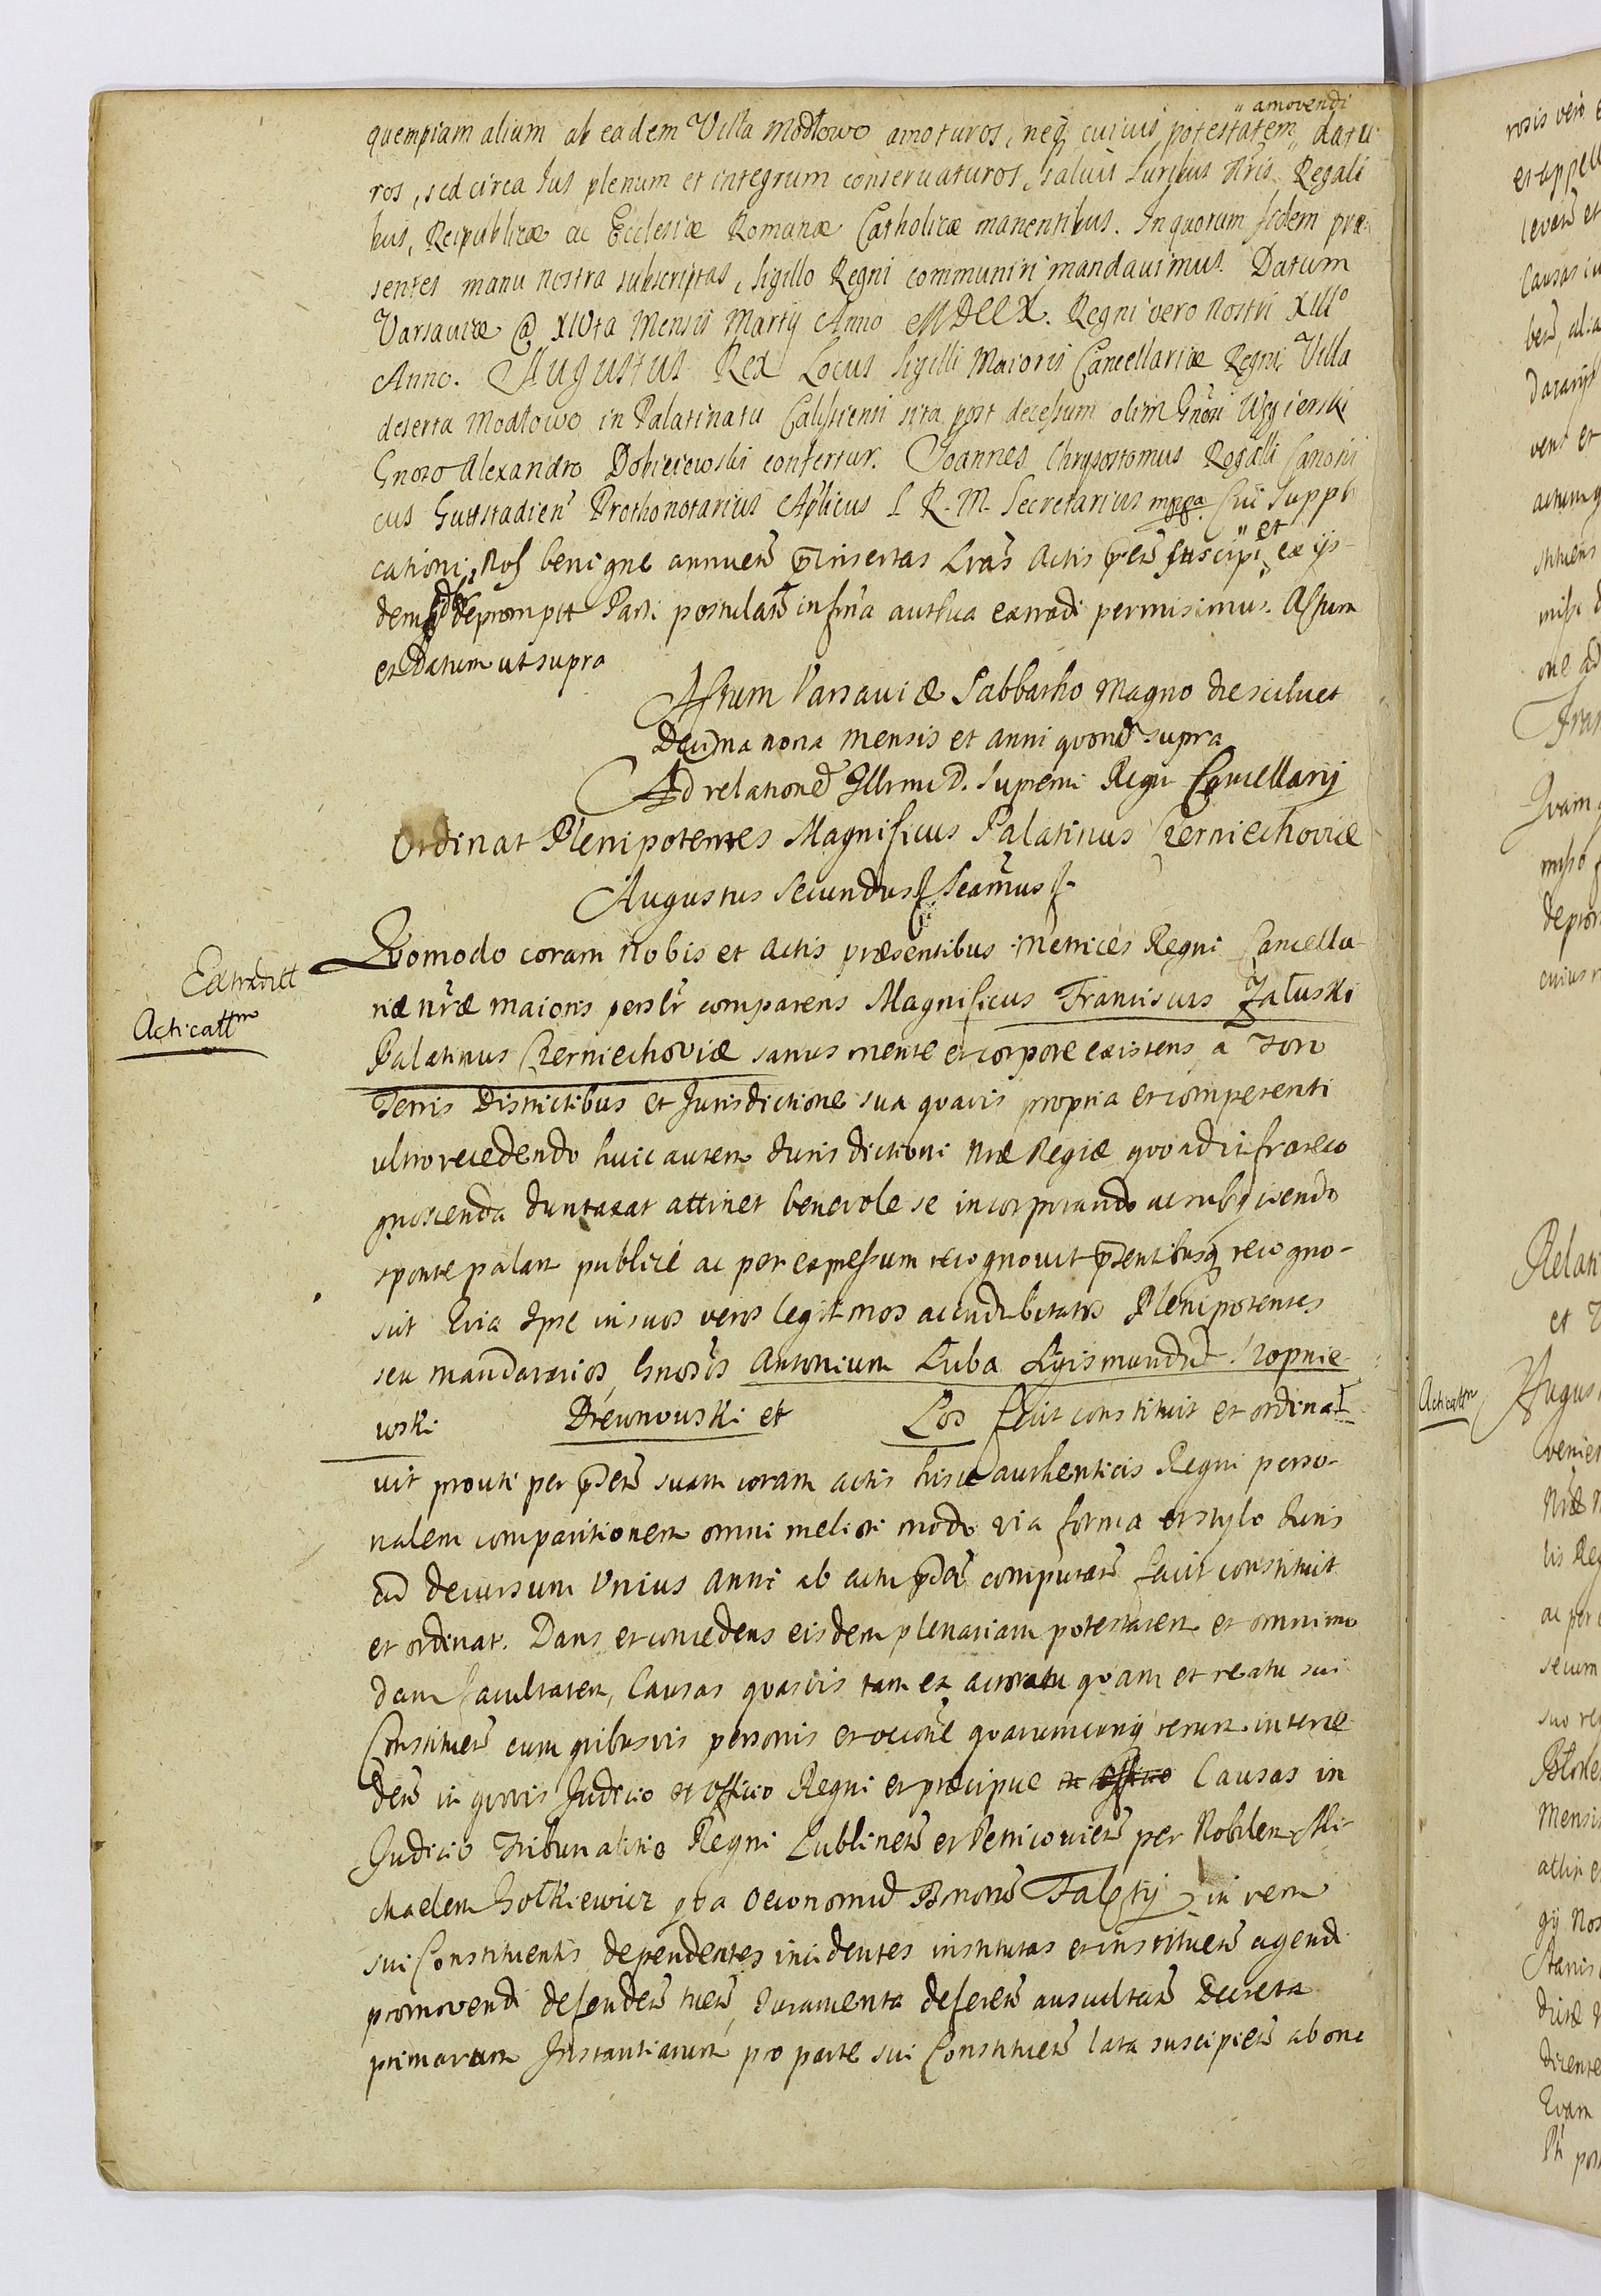 amovendi
quempiam alium ab eadem Villa Modłowo amoturos, neq cuiuis potestatem datu
ros, sed circa Ius plenum et integrum conseruaturos, saluis Iuribus Nris Regali
bus, Reipublicæ ac Ecclesiæ Romanæ Catholicæ manentibus. In quorum fidem præ
sentes manu nostra subscriptas, sigillo Regni communiri mandauimus. Datum
Varsauiæ @ XIVta Mensis Martij Anno MDCCX. Regni vero Nostri XIIIo
Anno. Augustus Rex Locus sigilli Maioris Cancellariæ Regni. Villa
deserta Modłowo in Palatinatu Calissiensi sita post decessum olim Gnosi
Gnoso Alexandro confertur. Joannes Chrysostomus Rogalli Canoni
cus Guttstadien Prothonotarius Aplicus S. R. M. Secretarius mppa. Cui suppli
et
cationi Nos benigne annuen p insertas Lras Actis pñ suscipi ex ijs
dem deprompt Parti postulañ in forma auttua extradi permisimus. Actum
et Datum ut supra
Actum Varsauiæ Sabbatho Magno die scilicet
Decima nona Mensis et anni quorũ supra
Ad relationẽ Illrmi D. Supremi Regni Cancellarij
Ordinat Plenipotentes Magnificus Palatinus Czerniechoviæ
Augustus Secundus Seamus
Extradict
Acticattm
Quomodo coram Nobis et Actis præsentibus Metrices Regni Cancella
riæ Nræ maioris persłr comparens Magnificus Franciscus Załuski
Palatinus Czerniechoviæ sanus mente et corpore existens a Foro
Terris Districtibus et Jurisdictione sua quavis propria et competenti
ultro recedendo huic autem Jurisdictioni Nræ Regiæ quoad infra reco
gnoscenda duntaxat attinet benevole se incorporando ac subijciendo
sponte palam publice ac per expressum recognovit pñsentibusq recogno-
scit Quia Ipse in suos veros legitimos ac indubitatos Plenipotentes
seu Mandatarios Gnosos Antonium Luba Sigismundũ Kropnie
wski Drewnowski et Los fecit constituit et ordina
vit prouti per pñtẽ suam coram actis hisce authenticis Regni perso-
nalem comparitionem omni meliori modo via forma et stylo Iuris
ad decursum Unius Anni ab actu pñti computañ facit constituit
et ordinat. Dans et concedens eisdem plenariam potestatem et omnimo
dam facultatem, Causas quasvis tam ex actoratu quam et reatu sui
Constitueñ cum quibusvis personis et occone quarumcunq rerum interce
deñ in quovis Judicio et Officio Regni et præcipue Causas in
Judicio Tribunalitio Regni Lublineñ et Petricovieñ per Nobilem Mi
chaelem Zołkiewicz qua Oeconomũ Bonorũ in rem
sui Constituentis dependentes incidentes institutas et instituen agendi
promovendi defendeñ tueñ, Iuramenta defereñ auscultañ Decreta
primarum Instantiarum pro parte sui Constitueñ lata suscipieñ ab one
Acticattm